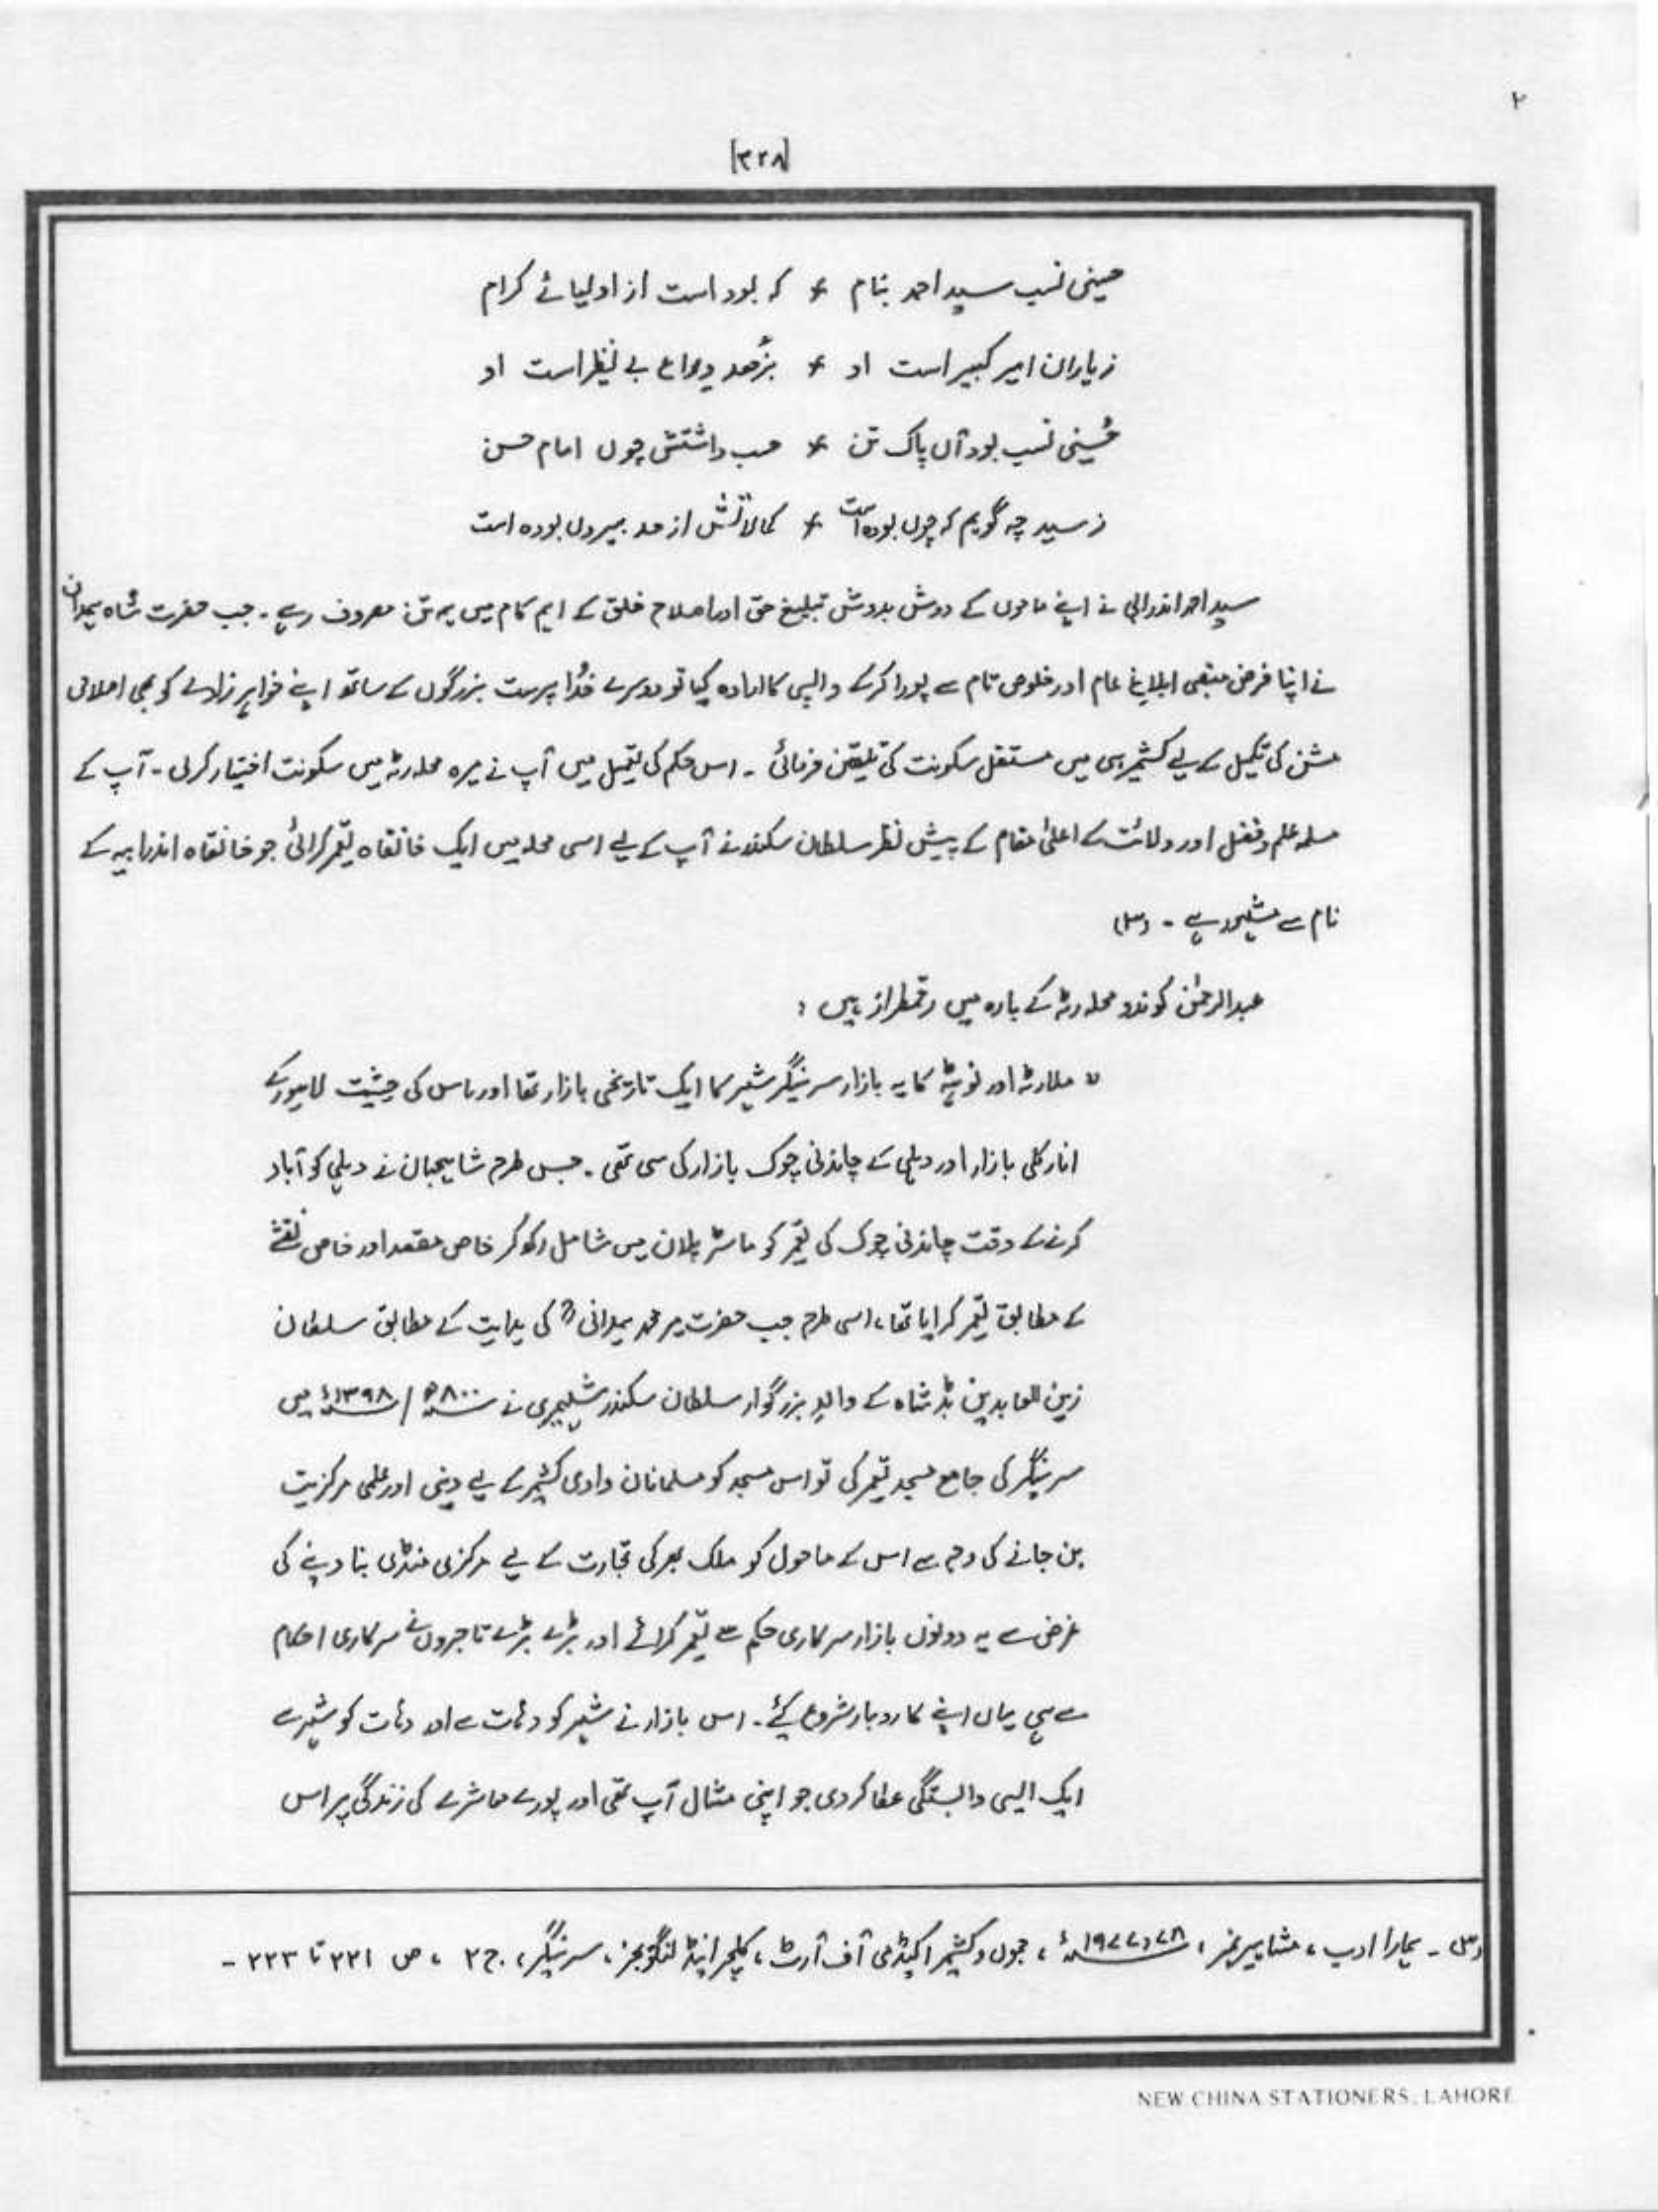 ۲
[۳۲۸]
حسینی نسب سید احمد بنام ٭ کہ بود است از اولیائے کرام
زیاران امیر کبیر است او ٭ بزُھد و ورع بے نظیر است او
حُسینی نسب بود آں پاک تن ٭ حسب داشتش چوں امام حسن
ز سید چہ گویم کہ چوں بودہ است ٭ کمالاتش از حد بیروں بودہ است
سید احمد اندرابی نے اپنے ماموں کے دوش بدوش تبلیغ حق اور اصلاح خلق کے اہم کام میں ہمہ تن مصروف رہے ۔ جب حضرت شاہ ہمدان
نے اپنا فرض منصبی ابلاغ عام اور خلوص تام سے پورا کرکے واپسی کا ارادہ کیا تو دوسرے خُدا پرست بزرگوں کے ساتھ اپنے خواہر زادے کو بھی اصلاحی
مشن کی تکمیل کے لیے کشمیر ہی میں مستقل سکونت کی تلقین فرمائی ۔ اس حکم کی تعمیل میں آپ نے میرہ محلہ رٹہ میں سکونت اختیار کرلی ۔ آپ کے
مسلمہ علم و فضل اور ولائت کے اعلیٰ مقام کے پیش نظر سلطان سکندر نے آپ کے لیے اسی محلہ میں ایک خانقاہ تعمیر کرائی جو خانقاہ اندرابیہ کے
نام سے مشہور ہے ۔ (۳)
عبدالرحمٰن کوندو محلہ رٹہ کے بارہ میں رقمطراز ہیں :
" ملارٹہ اور نوہٹہ کا یہ بازار سرینگر شہر کا ایک تاریخی بازار تھا اور اس کی حیثیت لاہور کے
انارکلی بازار اور دہلی کے چاندنی چوک بازار کی سی تھی ۔ جس طرح شاہجہان نے دہلی کو آباد
کرنے کے وقت چاندنی چوک کی تعمیر کو ماسٹر پلان میں شامل رکھ کر خاص مقصد اور خاص نقشے
کے مطابق تعمیر کرایا تھا، اسی طرح جب حضرت میر محمد ہمدانی ؒ کی ہدایت کے مطابق سلطان
زین العابدین بڈشاہ کے والدِ بزرگوار سلطان سکندر شہمیری نے ۸۰۰ھ / ۱۳۹۸ء میں
سرینگر کی جامع مسجد تعمیر کی تو اس مسجد کو مسلمانان وادی کشمیر کے لیے دینی اور علمی مرکزیت
بن جانے کی وجہ سے اس کے ماحول کو ملک بھر کی تجارت کے لیے مرکزی منڈی بنا دینے کی
غرض سے یہ دونوں بازار سرکاری حکم سے تعمیر کرائے اور بڑے بڑے تاجروں نے سرکاری احکام
سے ہی یہاں اپنے کاروبار شروع کیٔے ۔ اس بازار نے شہر کو دہات سے اور دہات کو شہر سے
ایک ایسی وابستگی عطا کردی جو اپنی مثال آپ تھی اور پورے معاشرے کی زندگی پر اس
(۳) ۔ ہمارا ادب ، مشاہیر نمبر ، ۷۸ ، ۱۹۷۷ء ، جموں و کشمیر اکیڈمی آف آرٹ ، کلچر اینڈ لنگویجز ، سرینگر ، ج ۲ ، ص ۲۲۱ تا ۲۲۳ ۔
NEW CHINA STATIONERS, LAHORE